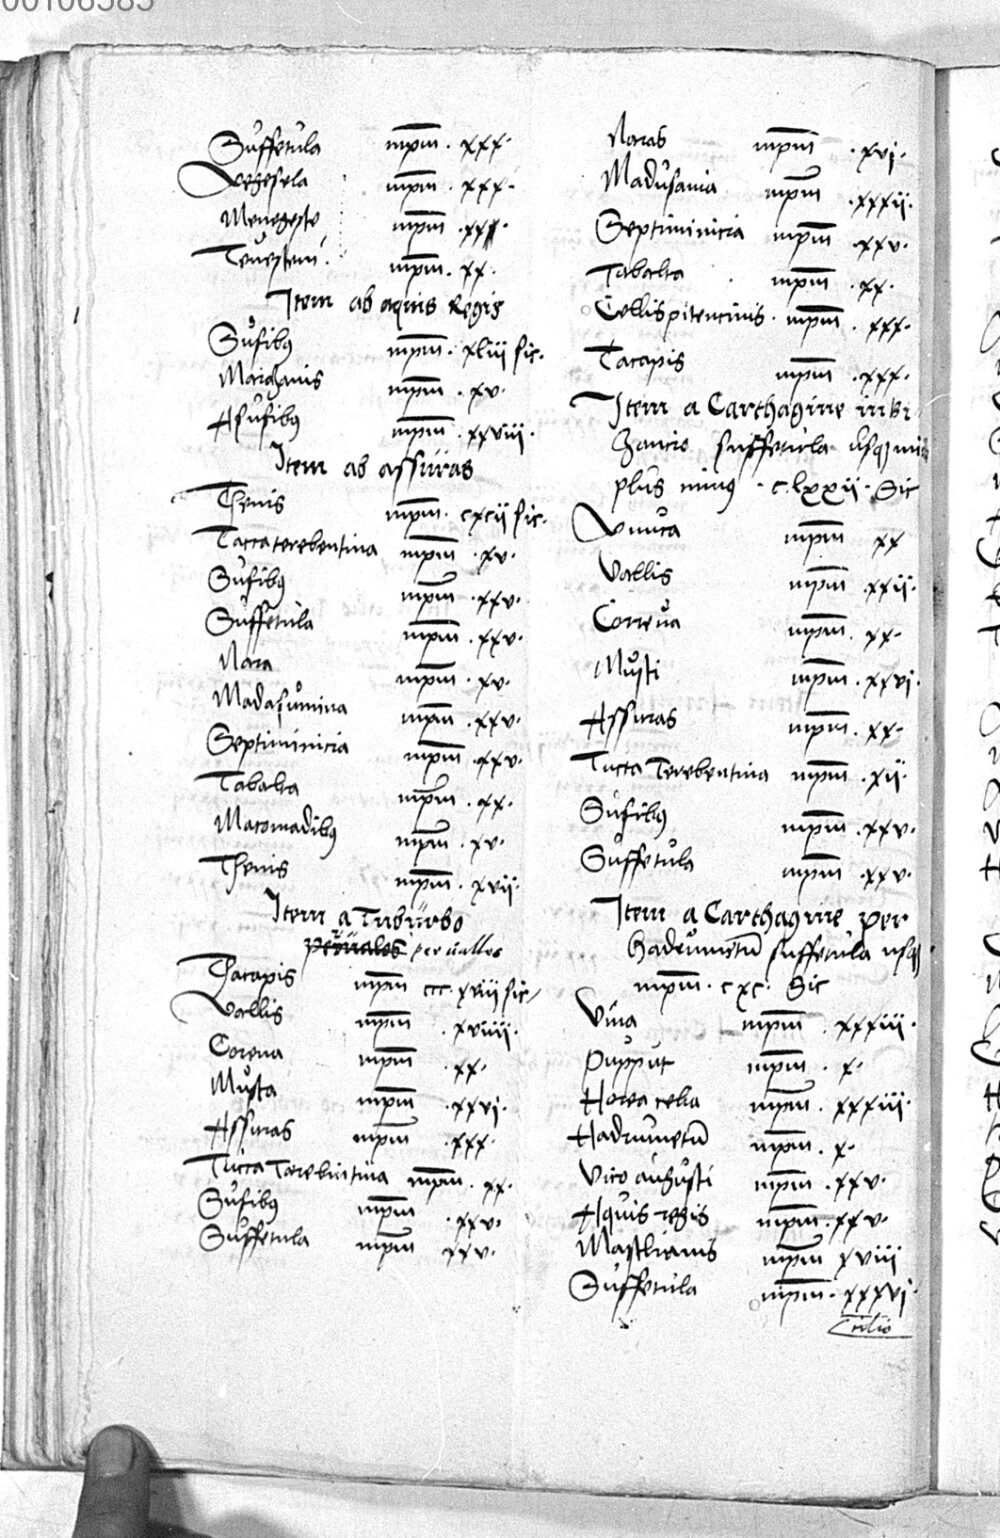 00106585
Suffetula mpm̅ · xxx ·
Vegesela mpm̅ · xxx ·
Menegeste mpm̅ · xxx ·
Teuestem · mpm̅ · xx ·
Item ab aquis Regis
Sufibꝰ mpm̅ · xliii sic ·
Marazanis mpm̅ · xv ·
Asufibꝰ mpm̅ · xxviii ·
Item ab assuras
Thenis mpm̅ · cxcii sic ·
Tacca terebentina mpm̅ · xv ·
Sufibꝰ mpm̅ · xxv ·
Suffetula mpm̅ · xxv ·
Nara mpm̅ · xv ·
Madasumina mpm̅ · xxv ·
Septiminicia mpm̅ · xxv ·
Tabalta mpm̅ · xx ·
Macomadibꝰ mpm̅ · xv ·
Thenis mpm̅ · xvii ·
Item a Tuburbo
per uallos
Thacapis mpm̅ ccc · xviii sic
Vallis mpm̅ · xviiii ·
Corena mpm̅ · xx ·
Musta mpm̅ · xxvi ·
Assuras mpm̅ · xxx ·
Tucca Terebintina mpm̅ · xx ·
Sufibꝰ mpm̅ · xxv ·
Suffetula mpm̅ xxv ·
Naras mpm̅ · xvi ·
Madusania mpm̅ · xxxii ·
Septiminicia mpm̅ · xxv ·
Tabalta · mpm̅ · xx ·
Cellis pitencinis · mpm̅ · xxx ·
Tacapis mpm̅ · xxx ·
Item a Carthagine in Bi
zancio suffetula usqꝫ
plus minꝰ · c · lxxii · Sic
Vnuca mpm̅ xx
Vallis mpm̅ · xxii ·
Correua mpm̅ · xx ·
Musti mpm̅ · xxvi ·
Assuras mpm̅ · xx ·
Tucca Terebentina mpm̅ · xii ·
Sufibꝰ mpm̅ · xxv ·
Suffetula mpm̅ · xxv ·
Item a Carthagine per
hadrumetū suffetula usqꝫ
mpm̅ · cxc · Sic
Vina mpm̅ · xxxiii ·
Pupput mpm̅ · x ·
Horea celia mpm̅ · xxxiii ·
Hadrumetū mpm̅ · x ·
Vico augusti mpm̅ · xxv ·
Aquis regis mpm̅ · xxv ·
Mastlianis mpm̅ xviii
Suffetula mpm̅ · xxxvi ·